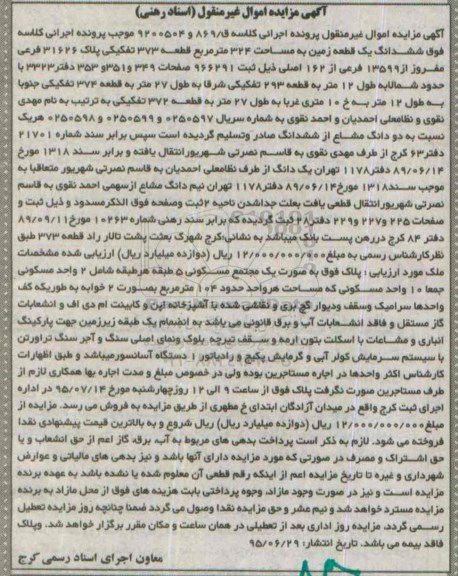 آگهی مزایده اموال غیرمنقول (اسناد رهنی)
آگهی مزایده اموال غیرمنقول پرونده اجرائی کلاسه ق/۸۶۹ و ۹۲۰۰۵۰۴ موجب پرونده اجرائی کلاسه
فوق ششدانگ یک قطعه زمین به مساحت ۳۲۴ مترمربع قطعه ۳۷۳ تفکیکی پلاک ۳۱۶۲۶ فرعی
مفروز از ۱۳۵۹۹ فرعی از ۱۶۲ اصلی ذیل ثبت ۹۶۶۲۹۱ صفحات ۳۴۹ و۳۵۱ و ۳۵۳ دفتر ۳۳۲۳ با
حدود شمالابه طول ۱۲ متر به قطعه ۲۹۳ تفکیکی شرقا به طول ۲۷ متر به قطعه ۳۷۴ تفکیکی جنوبا
به طول ۱۲ متر به خ ۱۰ متری غربا به طول ۲۷ متر به قطعه ۳۷۲ تفکیکی به ترتیب به نام مهدی
نقوی و نظامعلی احمدیان و احمد نقوی به شماره سریال ۰۲۵۰۵۹۷ و ۰۲۵۰۵۹۹ و ۰۲۵۰۵۹۸ هریک
نسبت به دو دانگ مشاع از ششدانگ صادر وتسلیم گردیده است سپس برابر سند شماره ۲۱۷۰۱
دفتر ۶۳ کرج از طرف مهدی نقوی به قاسم نصرتی شهریور انتقال یافته و برابر سند ۱۳۱۸ مورخ
۸۹/۰۶/۱۴ دفتر ۱۱۷۸ تهران یک دانگ از طرف نظامعلی احمدیان به قاسم نصرتی شهریور متعاقبا به
موجب سند ۱۳۱۸ مورخ ۸۹/۰۶/۱۴ دفتر ۱۱۷۸ تهران نیم دانگ مشاع ازسهمی احمد نقوی به قاسم
نصرتی شهریور انتقال قطعی یافت بعلت جداشدن ناحیه ۲ ثبت وصفحه فوق الذکرمسدود و ذیل ثبت و
صفحات ۲۲۵ و ۲۲۷ و ۲۲۹ دفتر ۲۸ ثبت گردیده که برابر سند رهنی شماره ۱۰۲۶۳ مورخ ۸۹/۰۹/۱۱
دفتر ۸۴ کرج دررهن پست بانک میباشد به نشانی:کرج شهرک بعثت پشت تالار راد قطعه ۳۷۳ طبق
نظرکارشناس رسمی به مبلغ ۱۲/۰۰۰/۰۰۰/۰۰۰ (دوازده میلیارد ریال) ارزیابی شده مشخصات
ملک مورد ارزیابی : پلاک فوق به صورت یک مجتمع مسکونی ۵ طبقه هرطبقه شامل ۲ واحد مسکونی
جمعا ۱۰ واحد مسکونی که مساحت هرواحد حدود ۱۰۴ مترمربع بصورت ۲ خوابه به طوریکه کف
واحدها سرامیک وسقف ودیوار گچ بری و نقاشی شده با آشپزخانه اپن و کابینت ام دی اف و انشعابات
گاز مستقل و فاقد انشعابات آب و برق قانونی می باشد به انضمام یک طبقه زیرزمین جهت پارکینگ
انباری و مشاعات با اسکلت بتون آرمه و سقف تیرچه بلوک ونمای اصلی سنگ و آجر سنگ تراورتن
با سیستم سرمایش کولر آبی و گرمایش پکیج و رادیاتور ۱ دستگاه آسانسورمیباشد و طبق اظهارات
کارشناس اکثر واحدها در اجاره مستاجرین بوده ولی در خصوص مبلغ و مدت اجاره بها همکاری لازم از
طرف مستاجرین صورت نگرفت پلاک فوق از ساعت ۹ الی ۱۲ روزچهارشنبه مورخ ۹۵/۰۷/۱۴ در اداره
اجرای ثبت کرج واقع در میدان آزادگان ابتدای خ مطهری از طریق مزایده به فروش می رسد. مزایده از
مبلغ ۱۲/۰۰۰/۰۰۰/۰۰۰ ریال (دوازده میلیارد ریال) ریال شروع و به بالاترین قیمت پیشنهادی نقدا
فروخته می شود. لازم به ذکر است پرداخت بدهی های مربوط به آب، برق، گاز اعم از حق انشعاب و یا
حق اشتراک و مصرف در صورتی که مورد مزایده دارای آنها باشد و نیز بدهی های مالیاتی و عوارض
شهرداری و غیره تا تاریخ مزایده اعم از اینکه رقم قطعی آن معلوم شده یا نشده باشد به عهده برنده
مزایده است و نیز در صورت وجود مازاد، وجوه پرداختی بابت هزینه های فوق از محل مازاد به برنده
مزایده مسترد خواهد شد و نیم عشر و حق مزایده نقدا وصول می گردد ضمنا چنانچه روز مزایده تعطیل
رسمی گردد، مزایده روز اداری بعد از تعطیلی در همان ساعت و مکان مقرر برگزار خواهد شد. وپلاک
فاقد بیمه می باشد. تاریخ انتشار: ۹۵/۰۶/۲۹
معاون اجرای اسناد رسمی کرج